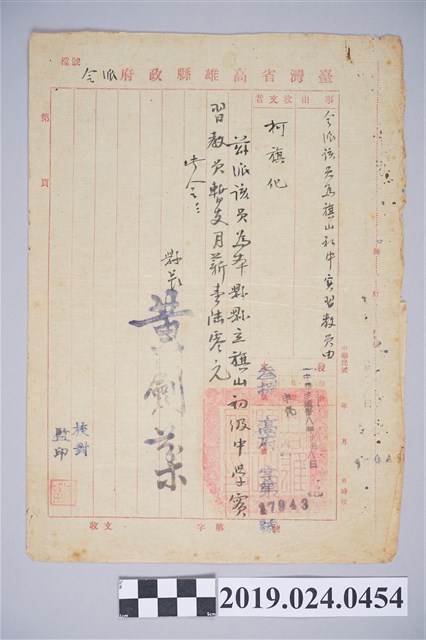 檔號
臺灣省高雄縣政府派令
事由
收文者
令派該員為旗山初中實習教員由
柯旗化
茲派該員為本縣縣立旗山初級中學實
習教員暫支月薪壹陸零元
此令
縣長
黃劍棻
17943
號
校對
監印
收文 字第 號
第 頁
2019.024.0454